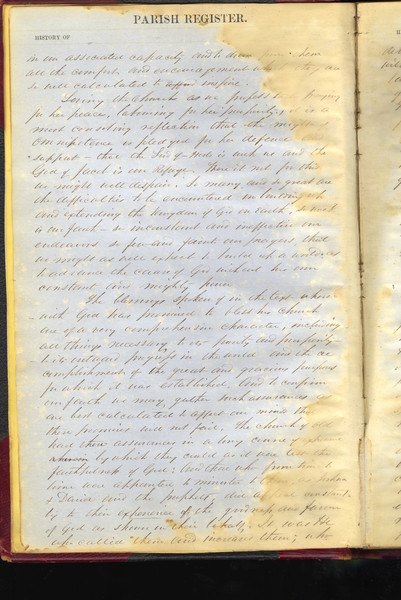 PARISH REGISTER.
HISTORY OF
in an associated capacity and to draw from them
all the comforts and encouragement which they are
so well calculated to afford inspire.
Loving the Church as we profess to do praying
for her peace, laboring for her prosperity, it is a
most consoling reflection that the might of
Omnipotence is pledged for her defence and
support - that the Lord of Hosts is with us and the
God of Jacob is our refuge. Were it not for this
we might well despair. So many and so great are
the difficulties to be encountered in building up
and extending the kingdom of God on earth, so weak
is our faith - so inconstant and ineffective our
endeavors so few and faint our prayers, that
we might as well expect to build up a world as
to advance the cause of God without his own
constant and mighty power.
The blessings spoken of in the text where
-with God has promised to bless his church
are of a very comprehensive character, including
all things necessary to its purity and prosperity -
to its outward progress in the world and the ac
complishment of the great and gracious purposes
for which it was established. And to confirm
our faith we may gather such assurances as
are best calculated to affect our minds that
these promises will not fail. The church of old
had these assurances in a long course of
by which they could as it were test the
faithfulness of God; and those who from time to
time were appointed to minister to
David and the prophets, did appeal constant
ly to their experience of the goodness and favor
of God as shown in their
called them and increased them; who